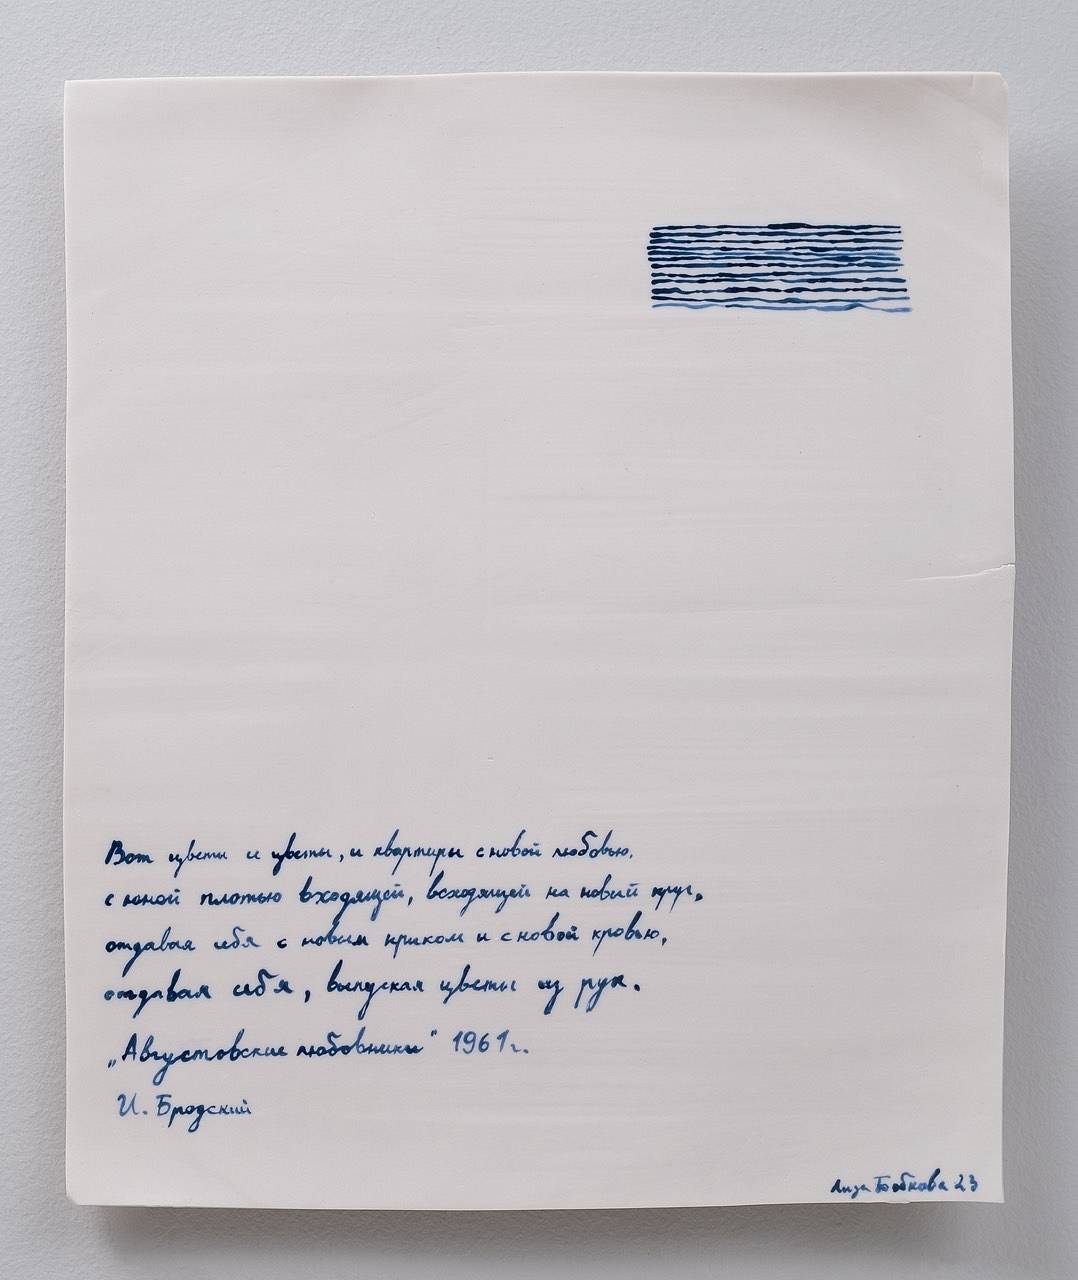 Вот цветы и цветы, и квартиры с новой любовью,
с юной плотью входящей, всходящей на новый круг,
отдавая себя с новым криком и с новой кровью,
отдавая себя, выпуская цветы из рук.
„Августовские любовники" 1961г.
И. Бродский
Лиза Бобкова 23